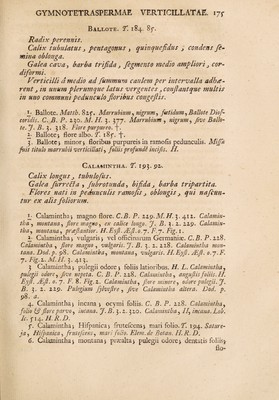 GYMNOTETRASPERMAE VERTICILLATAE. 175
BALLOTE. T. 184. 85.
Radix perennis.
Calix tubulatus, pentagonus, quinquefidus; condens semina oblonga.
Galea cava, barba trifida, segmento medio ampliori, cordiformi.
Verticilli a medio ad summum caulem per intervalla adhærent, in unum plerumque latus vergentes, constantque multis
in uno communi pedunculo floribus congestis.
1. Ballote. Matth. 825. Marrubium, nigrum, fœtidum, Ballote Dioscoridis. C. B. P. 230. M. H. 3. 377. Marrubium, nigrum, sive Ballote. J. B. 3. 318. Flore purpureo. †.
2. Ballote; flore albo. T. 185. †.
3. Ballote; minor; floribus purpureis in ramosis pedunculis. Missa
fuit titulo marrubii verticillati, foliis profundè incisis. H.
CALAMINTHA. T. 193. 92.
Calix longus, tubulosus.
Galea surrecta, subrotunda, bifida, barba tripartita.
Flores nati in pedunculis ramosis, oblongis, qui nascuntur ex alis foliorum.
1. Calamintha; magno flore. C. B. P. 229. M. H. 3. 412. Calamintha, montana, flore magno, ex calice longo. J. B. 3. 2. 229. Calamintha, montana, præstantior. H. Eyst. Æst. o. 7. F. 7. Fig. 1.
2. Calamintha; vulgaris; vel officinarum Germaniæ. C. B. P. 228.
Calamintha, flore magno, vulgaris. J. B. 3. 2. 228. Calamintha montana. Dod. p. 98. Calamintha, montana, vulgaris. H. Eyst. Æst. o. 7. F.
7. Fig. 2. M. H. 3. 413.
3. Calamintha; pulegii odore; foliis latioribus. H. L. Calamintha,
pulegii odore, sive nepeta. C. B. P. 228. Calamintha, angustis foliis. H.
Eyst. Æst. o. 7. F. 8. Fig. 2. Calamintha, flore minore, odore pulegii. J.
B. 3. 2. 229. Pulegium sylvestre, sive Calamintha altera. Dod. p.
98. a.
4. Calamintha; incana; ocymi foliis. C. B. P. 228. Calamintha,
folio & flore parvo, incana. J. B. 3. 2. 320. Calamintha, II, incana. Lob.
Ic. 514. H. R. D.
5. Calamintha; Hispanica; frutescens; mari folio. T. 194. Satureja, Hispanica, frutescens, mari folio. Elem. de Botan. H. R. D.
6. Calamintha; montana; præalta; pulegii odore; dentatis foliis;
flo-